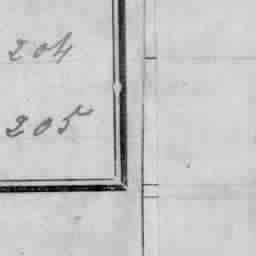 204
205